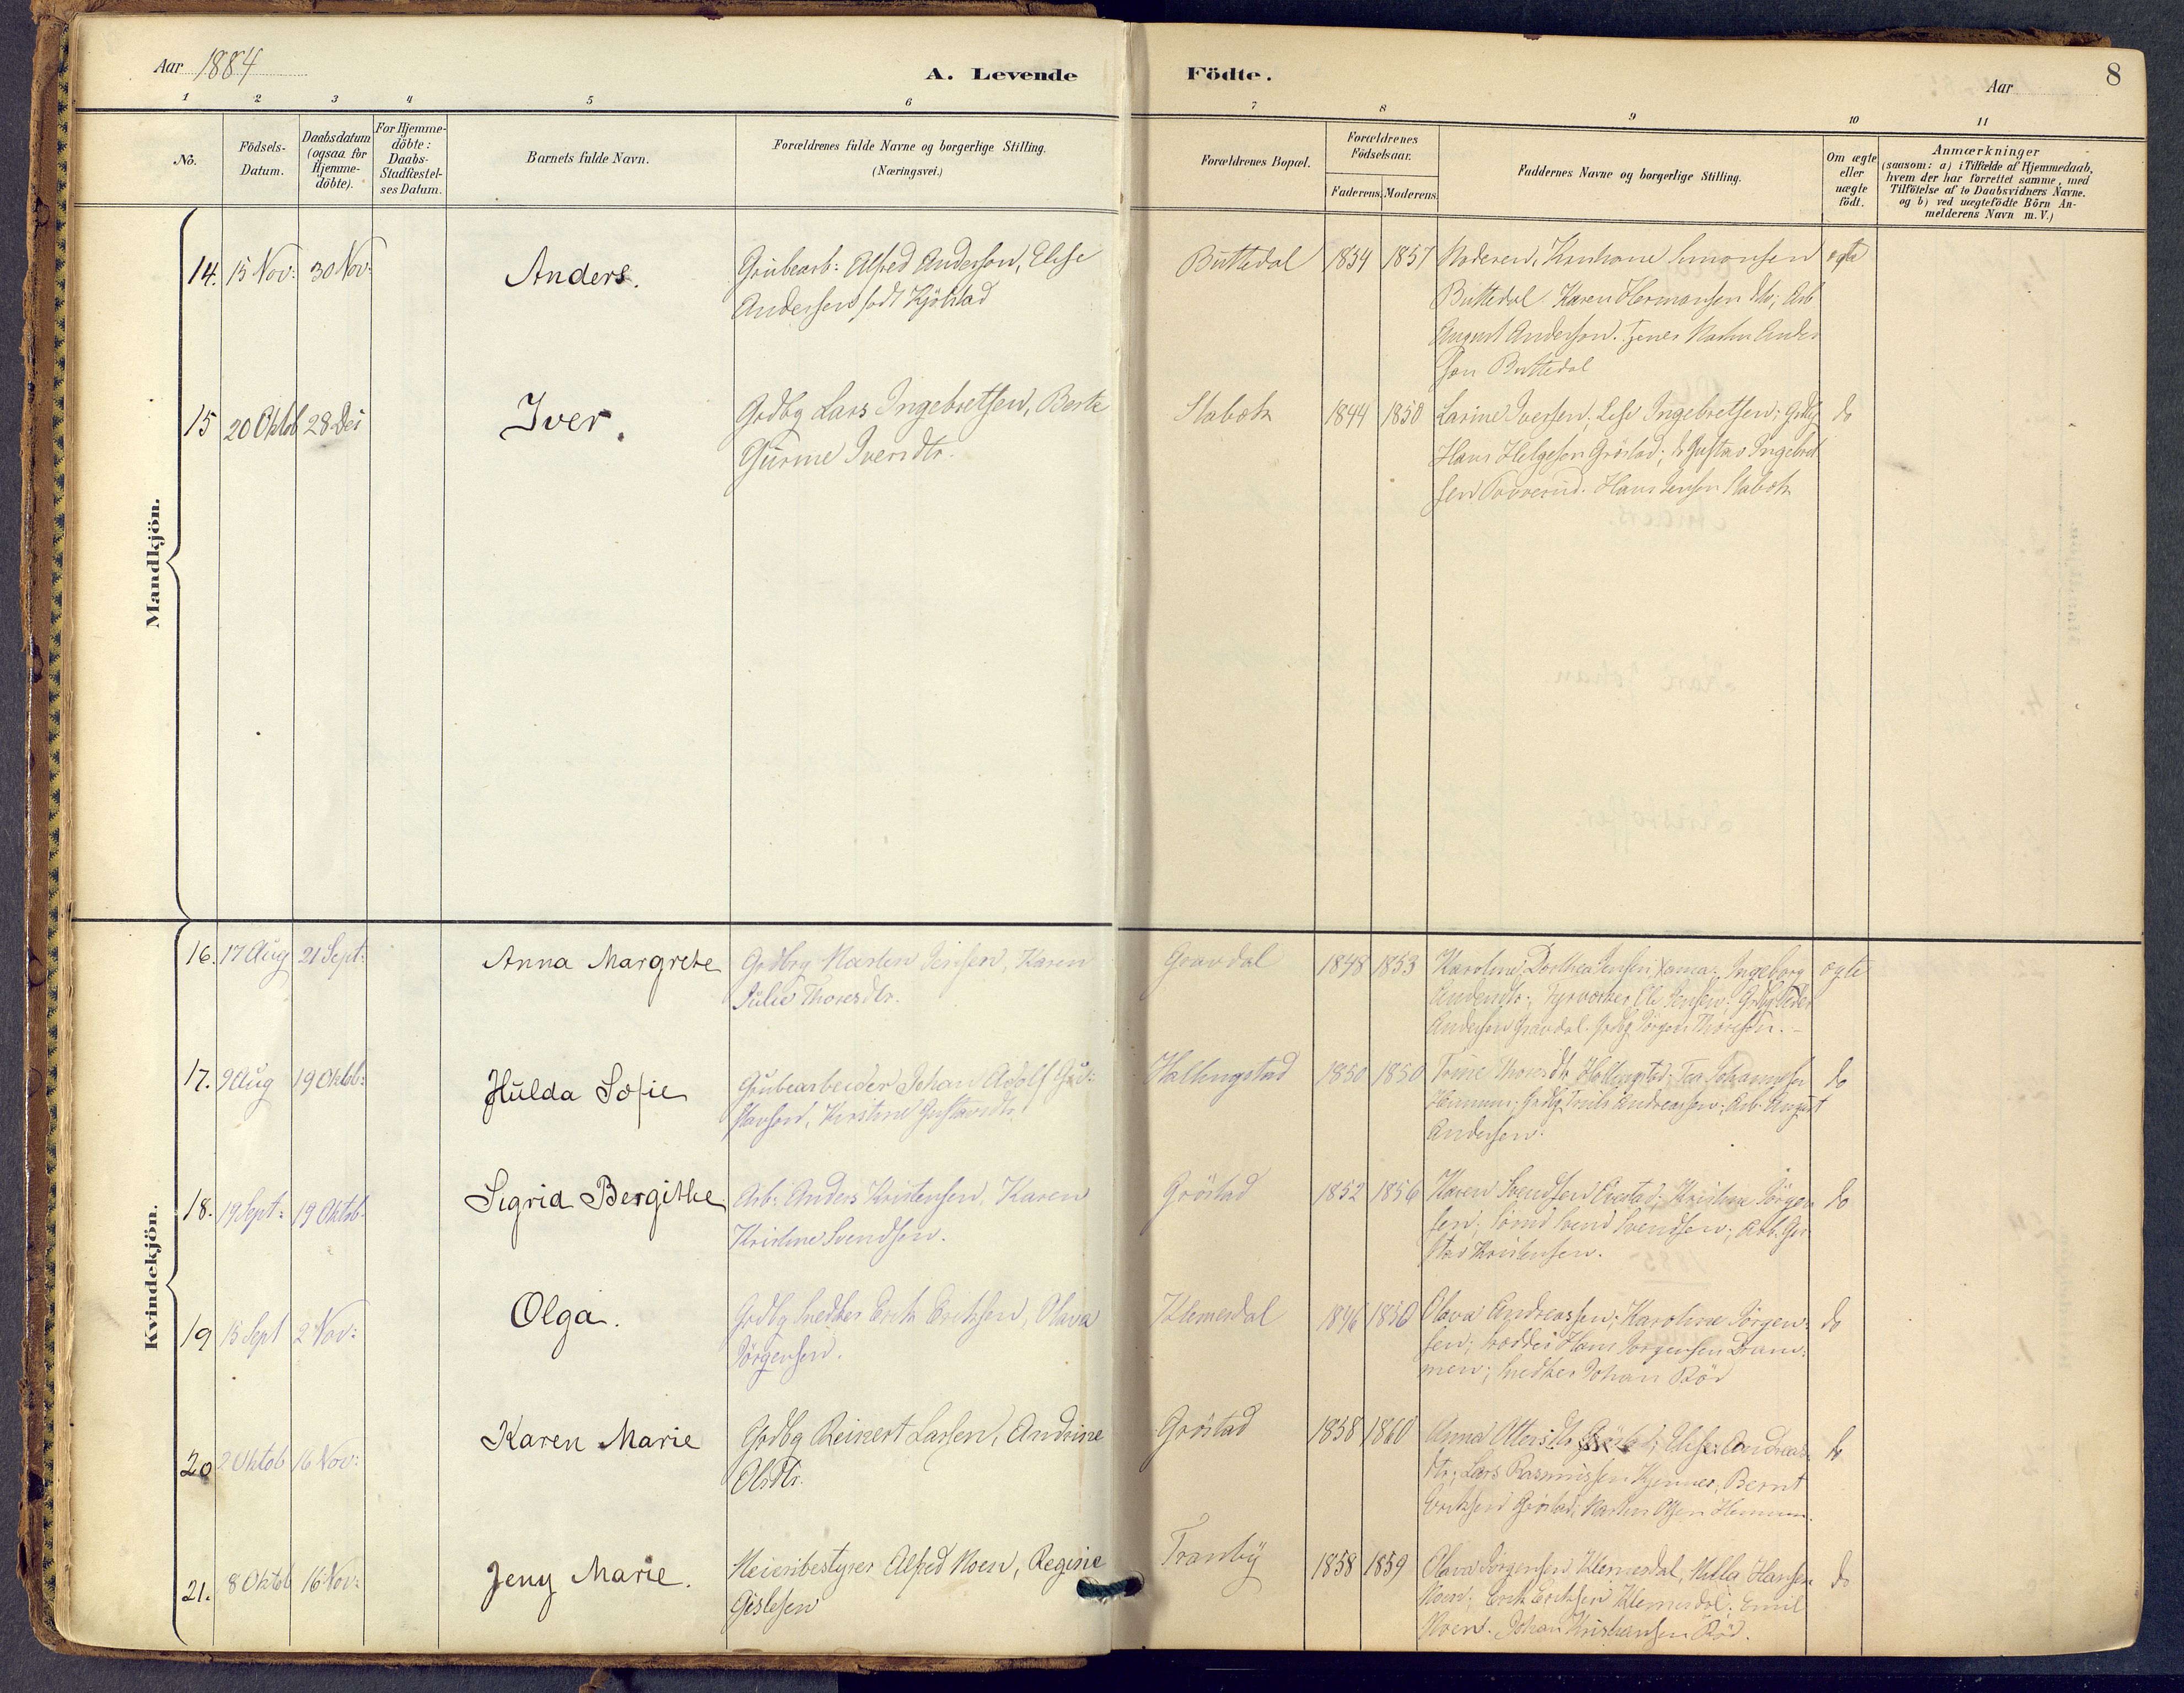 Aar 1884
A. Levende Födte.
Aar
8
1 2 3 4 5 6 7 8 9 10 11
No.
Födsels-
Datum.
Daabsdatum
(ogsaa for
Hjemme-
döbte).
For Hjemme-
döbte:
Daabs-
Stadfæstel-
ses Datum.
Barnets fulde Navn.
Forældrenes fulde Navne og borgerlige Stilling.
(Næringsvei.)
Forældrenes Bopæl.
Forældrenes
Födselsaar.
Faderens. Moderens.
Faddernes Navne og borgerlige Stilling.
Om ægte
eller
uægte
födt.
Anmærkninger
(saasom: a) i Tilfælde af Hjemmedaab,
hvem der har forrettet samme, med
Tilföielse af to Daabsvidners Navne.
og b) ved uægtefödte Börn An-
melderens Navn m. V.)
Mandkjön.
14. 15 Nov: 30 Nov: Anders.
Grubearb: Alfred Anderson, Elise
Andersen født Kjölstad
Buttedal 1854 1857
Moderen, Simonsen
Buttedal Karen Hermansen
August Anderson.
Buttedal
ægte
15 20 Oktob 28 Des Iver.
Grdbg Lars Ingebretsen, Berte
Gurine Iversdtr.
Stabæk 1844 1850
Larine Iversen, Ingebretsen; Grdbg
Hans Helgesen Gröstad; Gustav Ingebret
sen Hans Jensen Stabæk
do
Kvindekjön.
16. 17 Aug 21 Sept: Anna Margrete
Grdbrg Marten Jensen, Karen
Julie Thoresdtr.
Gravdal 1848 1853
Karoline, Dorthea Jensen, Ingeborg
Andersdtr; Fyrvogter Ole Jensen; Grdbg Peder
Andersen Gravdal. Grdbg Jörgen Thoresen.
ægte
17. 9 Aug 19 Oktob: Hulda Sofie
Grubearbeider Johan Adolf Gu-
stavson, Kristine Gustavsdtr.
Hallingstad 1850 1850
Trine Thoresdtr Hallingstad; Johannesen
Grdbg Andreassen; Arb. August
Andersen.
do
18. 19 Sept: 19 Oktob. Sigrid Bergithe
Arb: Anders Kristensen, Karen
Kristine Svendsen.
Gröstad 1852 1856
Karen Svendsen Kristine Jörgen
sen; Svend Svendsen; Arb. Gu
stav Kristensen.
do
19 15 Sept 2 Nov: Olga.
Grdbg Snedker Erik Eriksen, Olava
Jörgensen.
Klemesdal 1846 1850
Olava Andreassen; Karoline Jörgen-
sen; Hans Jörgensen Dram-
men; Snedker Johan Röd
do
20 2 Oktob 16 Nov: Karen Marie
Grdbg Reinert Larsen, Andrine
Olsdtr.
Gröstad 1858 1860
Anna Ottersdtr Elise Andreas
dtr; Lars Rasmussen Kjenner, Bernt
Eriksen Gröstad; Marten Olsen
do
21. 8 Oktob 16 Nov: Jeny Marie.
Meieribestyrer Alfred Moen, Regine
Gislesen
Tranby 1858 1859
Olava Jörgensen Klemesdal, Milla Hansen
Moen; Erik Eriksen Klemesdal; Emil
Moen. Johan Kristiansen Röd.
do